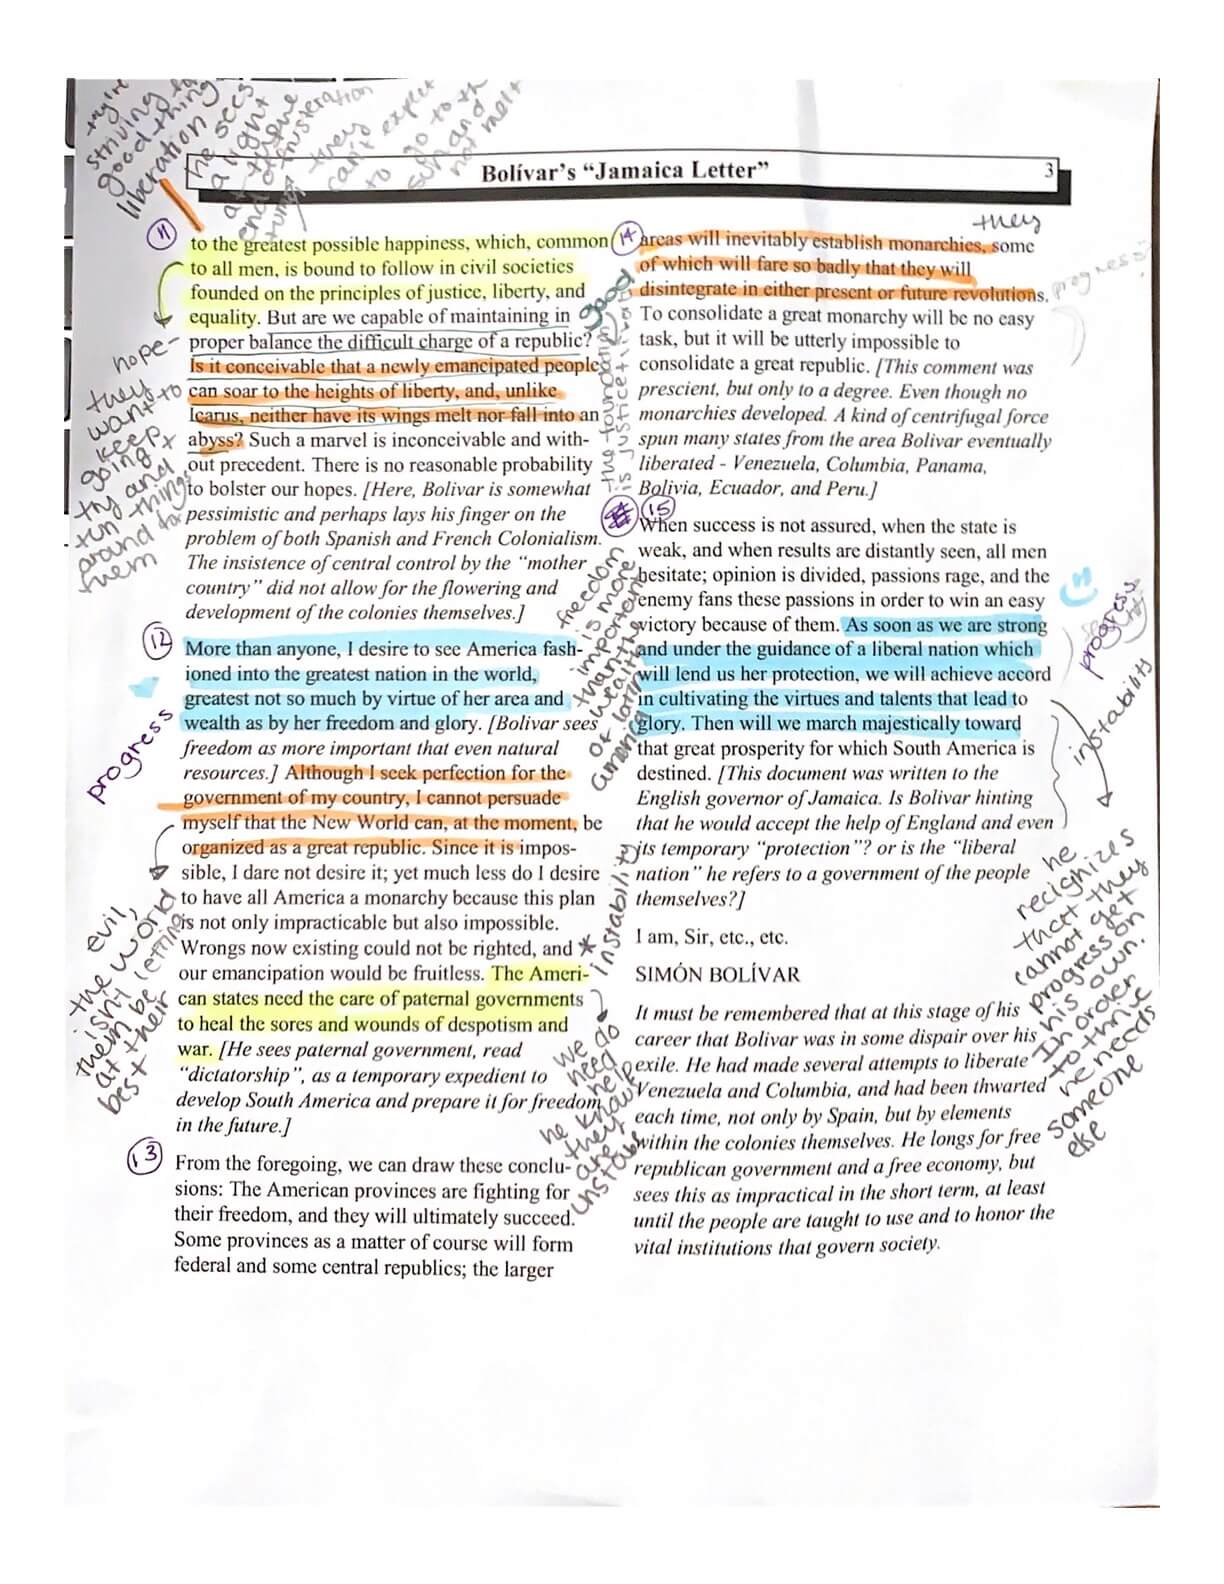 try're
striving for
good thing
liberation
he sees
a light
at the
end of the
tunnel
frusteration
they
can't expect
to go to the
sun and
not melt
Bolívar's "Jamaica Letter"
3
11
to the greatest possible happiness, which, common
to all men, is bound to follow in civil societies
founded on the principles of justice, liberty, and
equality. But are we capable of maintaining in
proper balance the difficult charge of a republic?
Is it conceivable that a newly emancipated people
can soar to the heights of liberty, and, unlike
Icarus, neither have its wings melt nor fall into an
abyss? Such a marvel is inconceivable and with-
out precedent. There is no reasonable probability
to bolster our hopes. [Here, Bolivar is somewhat
pessimistic and perhaps lays his finger on the
problem of both Spanish and French Colonialism.
The insistence of central control by the "mother
country" did not allow for the flowering and
development of the colonies themselves.]
hope-
they
want to
keep
going
try and
turn things
around for
them
good
-the foundation
is justice + liberty
12
More than anyone, I desire to see America fash-
ioned into the greatest nation in the world,
greatest not so much by virtue of her area and
wealth as by her freedom and glory. [Bolivar sees
freedom as more important that even natural
resources.] Although I seek perfection for the
government of my country, I cannot persuade
myself that the New World can, at the moment, be
organized as a great republic. Since it is impos-
sible, I dare not desire it; yet much less do I desire
to have all America a monarchy because this plan
is not only impracticable but also impossible.
Wrongs now existing could not be righted, and
our emancipation would be fruitless. The Ameri-
can states need the care of paternal governments
to heal the sores and wounds of despotism and
war. [He sees paternal government, read
"dictatorship", as a temporary expedient to
develop South America and prepare it for freedom
in the future.]
progress
freedom
is more
important
than the
wealth
of latin
america
evil,
the world
isn't letting
them be
at their
best
* instability
we do
need
help
he knows
they
are
unstable
13
From the foregoing, we can draw these conclu-
sions: The American provinces are fighting for
their freedom, and they will ultimately succeed.
Some provinces as a matter of course will form
federal and some central republics; the larger
they
14
areas will inevitably establish monarchies, some
of which will fare so badly that they will
disintegrate in either present or future revolutions.
To consolidate a great monarchy will be no easy
task, but it will be utterly impossible to
consolidate a great republic. [This comment was
prescient, but only to a degree. Even though no
monarchies developed. A kind of centrifugal force
spun many states from the area Bolivar eventually
liberated - Venezuela, Columbia, Panama,
Bolivia, Ecuador, and Peru.]
progress
15
When success is not assured, when the state is
weak, and when results are distantly seen, all men
hesitate; opinion is divided, passions rage, and the
enemy fans these passions in order to win an easy
victory because of them. As soon as we are strong
and under the guidance of a liberal nation which
will lend us her protection, we will achieve accord
in cultivating the virtues and talents that lead to
glory. Then will we march majestically toward
that great prosperity for which South America is
destined. [This document was written to the
English governor of Jamaica. Is Bolivar hinting
that he would accept the help of England and even
its temporary "protection"? or is the "liberal
nation" he refers to a government of the people
themselves?]
progress
instability
he
recignizes
that they
cannot get
progress on
his own.
In order
to thrive
he needs
someone
else
I am, Sir, etc., etc.
SIMÓN BOLÍVAR
It must be remembered that at this stage of his
career that Bolivar was in some dispair over his
exile. He had made several attempts to liberate
Venezuela and Columbia, and had been thwarted
each time, not only by Spain, but by elements
within the colonies themselves. He longs for free
republican government and a free economy, but
sees this as impractical in the short term, at least
until the people are taught to use and to honor the
vital institutions that govern society.